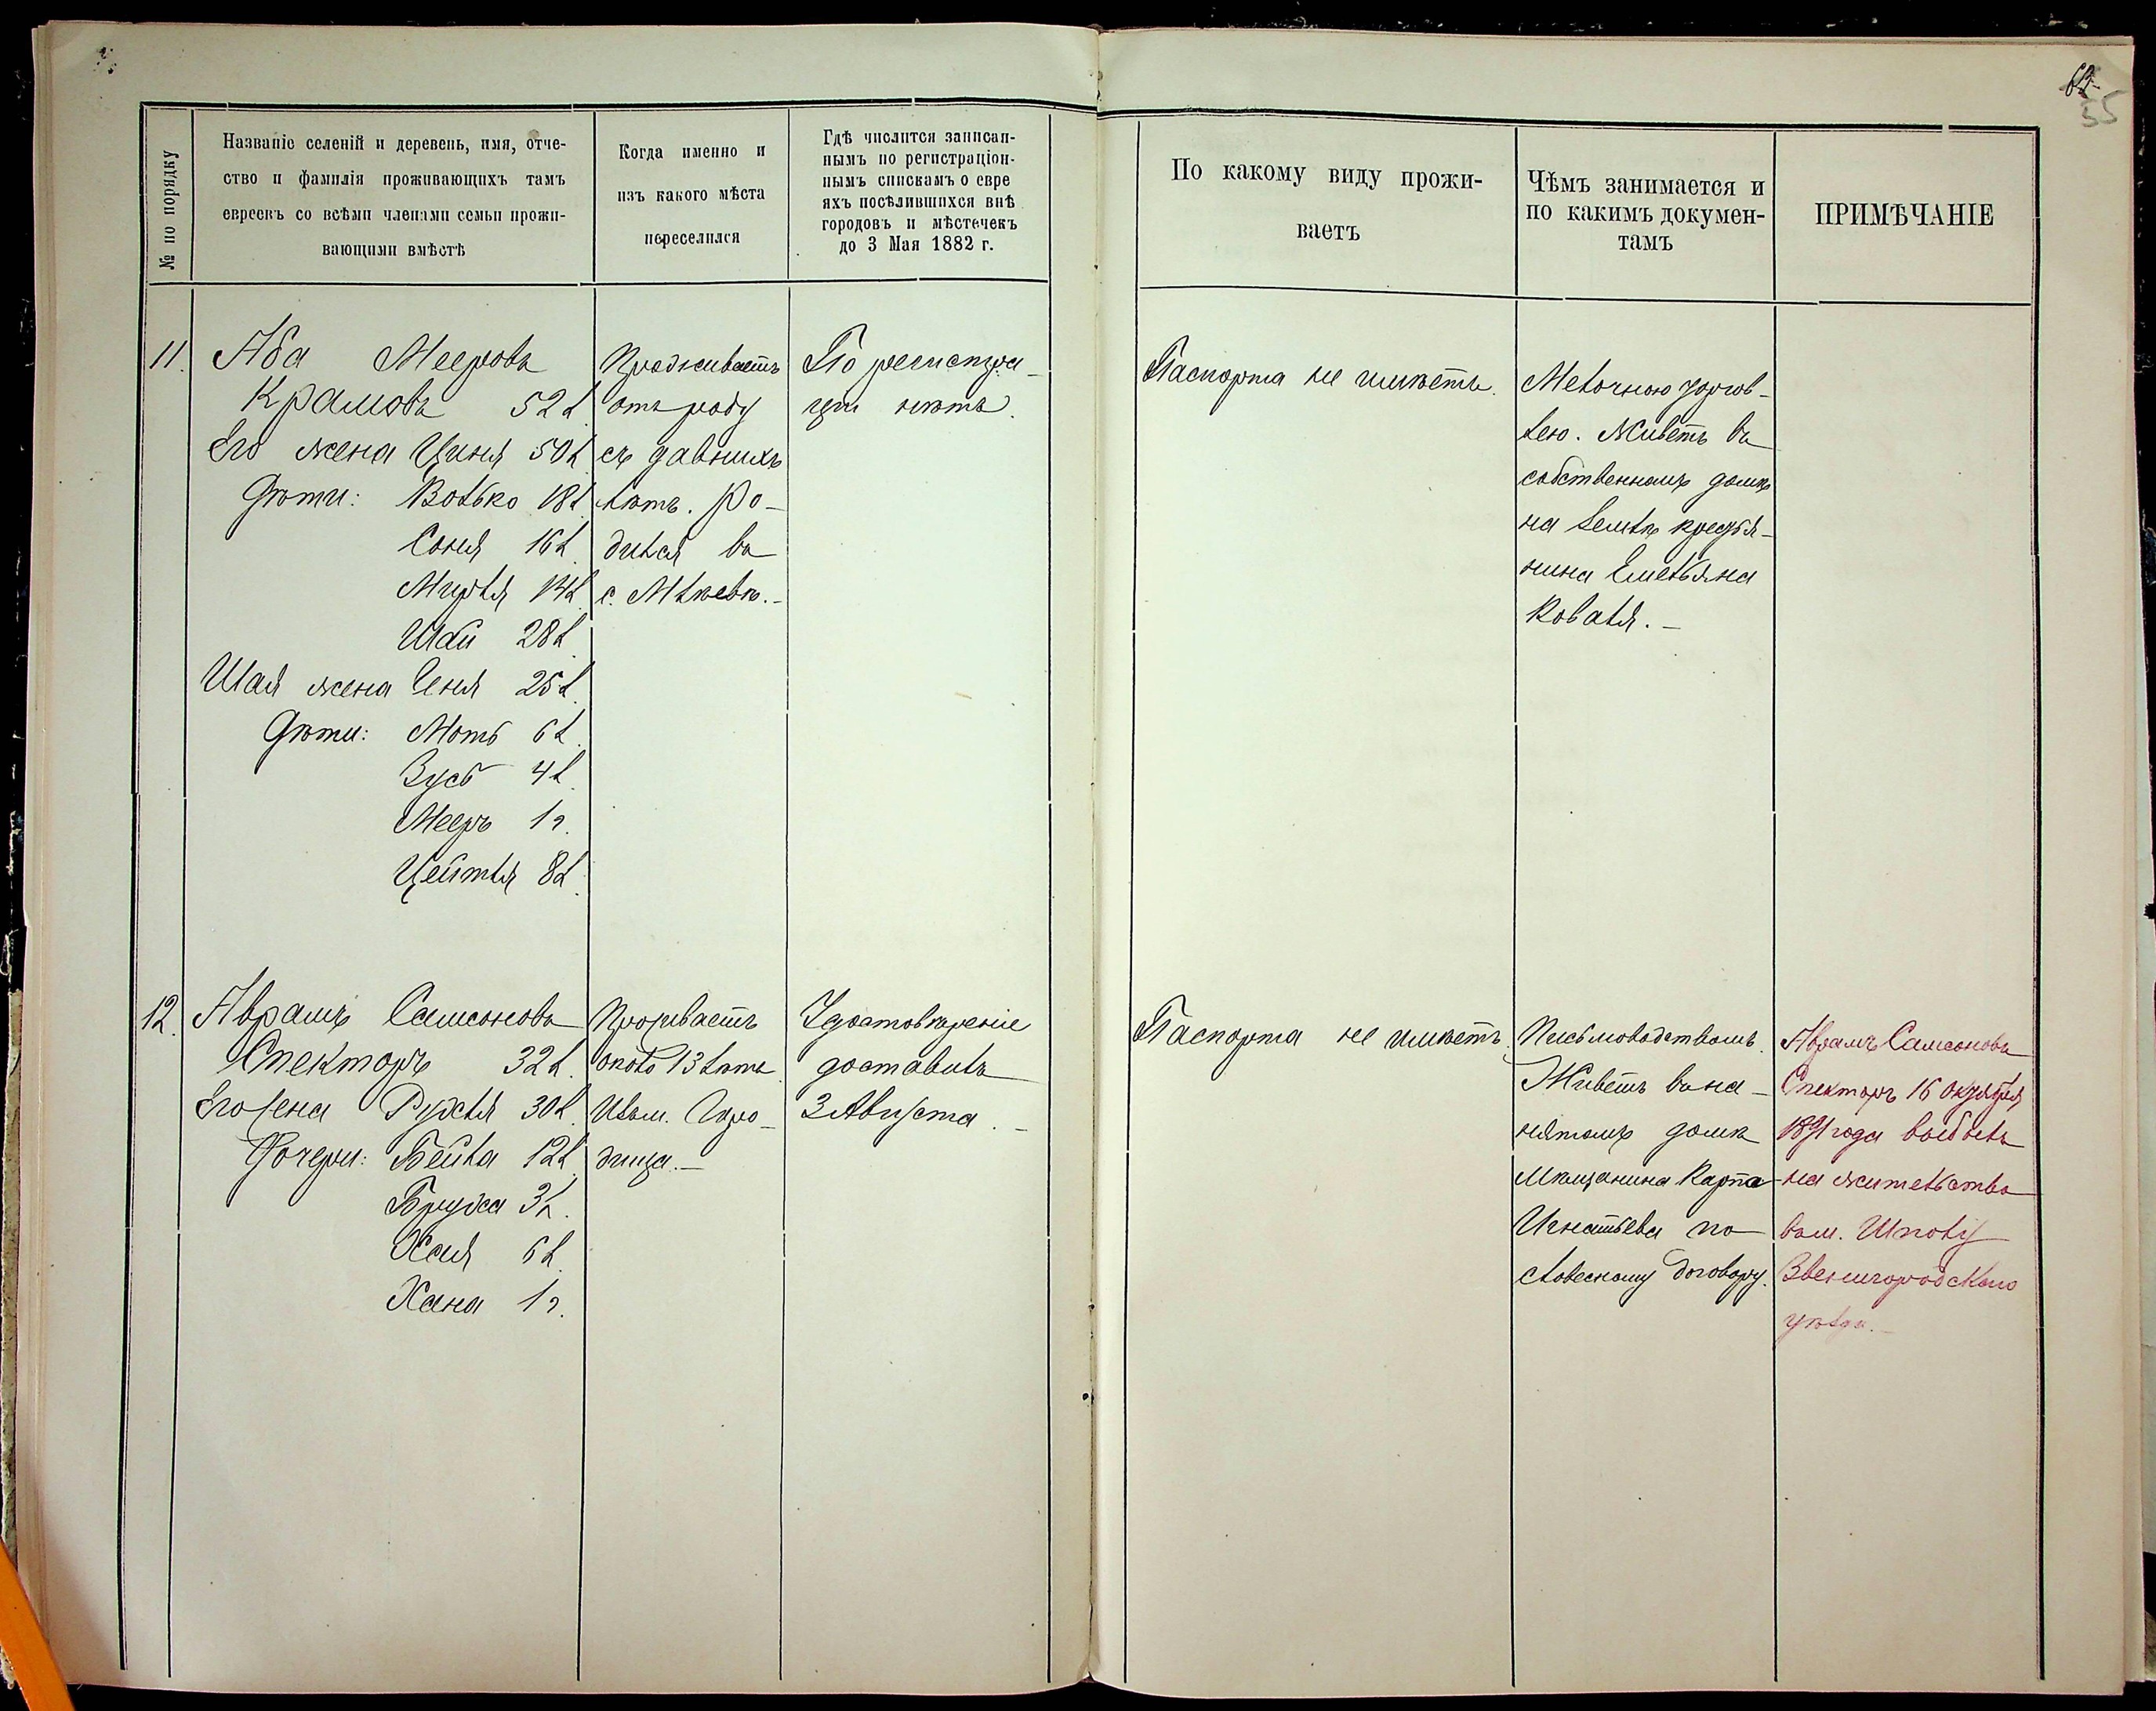 63
55
№ по порядку
Названіе селеній и деревень, имя, отче-
ство и фамилія проживающихъ тамъ
евреевъ со всѣми членами семьи прожи-
вающими вмѣстѣ
Когда именно и
изъ какого мѣста
переселился
Гдѣ числится записан-
нымъ по регистраціон-
нымъ спискамъ о евре
яхъ посѣлившихся внѣ
городовъ и мѣстечекъ
до 3 Мая 1882 г.
По какому виду прожи-
ваетъ
Чѣмъ занимается и
по какимъ докумен-
тамъ
ПРИМѢЧАНІЕ
11.
Аба Мееровъ
Крамовъ 52 л.
Его жена Циня 50 л.
Дѣти: Волько 18 л.
Соня 16 л.
Мирля 14 л.
Шай 28 л.
Шая жена Геня 25 л.
Дѣти: Моть 6 л.
Зусь 4 л.
Мееръ 1 г.
Цейтля 8 л.
Проживаетъ
отъ роду
съ давнихъ
лѣтъ. Ро-
дился въ
с. Млѣевѣ.-
По регистра-
ціи нѣтъ.
Паспорта не имѣетъ.
Мелочною торгов-
лею. Живетъ въ
собственномъ домѣ
на землѣ кресть-
нина Емельяна
Коваля.-
12.
Аврамъ Самсоновъ
Спекторъ 32 л.
Его жена Рухля 30 л.
Дочери: Бейла 12 л.
Бруха 3 л.
Хая 6 л.
Хана 1 г.
Проживаетъ
около 13 лѣтъ
Изъ м. Горо-
дища.-
Удостовѣреніе
доставилъ
3 Августа.-
Паспорта не имѣетъ.
Письмоводствомъ.
Живетъ въ на-
нятомъ домѣ
Мѣщанина Карпа
Игнатьева по
словесному договору.
Аврамъ Самсоновъ
Спекторъ 16 Октября
1891 года выбылъ
на жительство
въ м. Шполу
Звенигородскаго
уѣзда.-